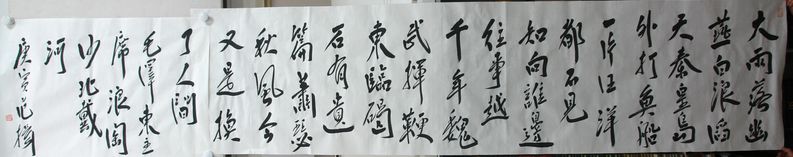 大雨落幽
燕白浪滔
天秦皇島
外打魚船
一片汪洋
都不見
知向誰邊
往事越
千年魏
武揮鞭
東臨碣
石有遺
篇蕭瑟
秋風今
又是換
了人間
毛澤東主
席浪淘
沙北戴
河
庚寅